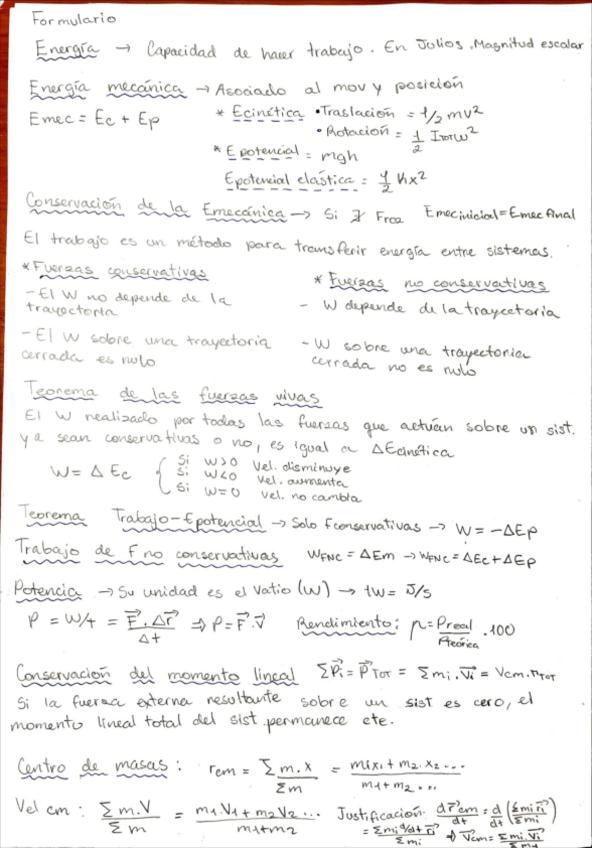 Formulario
Energía → Capacidad de hacer trabajo. En Julios. Magnitud escalar
Energía mecánica → Asociado al mov y posición
Emec = Ec + Ep
* Ecinética • Traslación = 1/2 mv²
• Rotación = 1/2 ITOT ω²
* Epotencial = mgh
Epotencial elástica = 1/2 kx²
Conservación de la Emecánica → Si ∄ Froz Emec inicial = Emec final
El trabajo es un método para transferir energía entre sistemas.
* Fuerzas conservativas
- El W no depende de la
trayectoria
- El W sobre una trayectoria
cerrada es nulo
* Fuerzas no conservativas
- W depende de la trayectoria
- W sobre una trayectoria
cerrada no es nulo
Teorema de las fuerzas vivas
El W realizado por todas las fuerzas que actúan sobre un sist.
ya sean conservativas o no, es igual a ΔEcinética
W = ΔEc { Si W>0 Vel. disminuye
Si W<0 vel. aumenta
Si W=0 vel. no cambia
Teorema Trabajo-Epotencial → Solo Fconservativas → W = -ΔEp
Trabajo de F no conservativas WFNC = ΔEm → WFNC = ΔEc + ΔEp
Potencia → Su unidad es el Vatio (W) → 1W = J/s
P = W/t = F⃗ . Δr⃗ / Δt ⇒ P = F⃗ . v⃗ Rendimiento: η = Preal / Pteórica . 100
Conservación del momento lineal ΣP⃗i = P⃗TOT = Σmi . V⃗i = Vcm . mTOT
Si la fuerza externa resultante sobre un sist es cero, el
momento lineal total del sist. permanece cte.
Centro de masas: rcm = Σ m.x / Σm = m1x1 + m2.x2 ... / m1 + m2 ...
Vel cm: Σ m.V / Σ m = m1.V1 + m2V2 ... / m1+m2
Justificación: dr⃗cm/dt = d/dt (Σmi r⃗i / Σmi)
= Σmi d/dt r⃗i / Σmi ⇒ V⃗cm = Σmi.V⃗i / Σmi